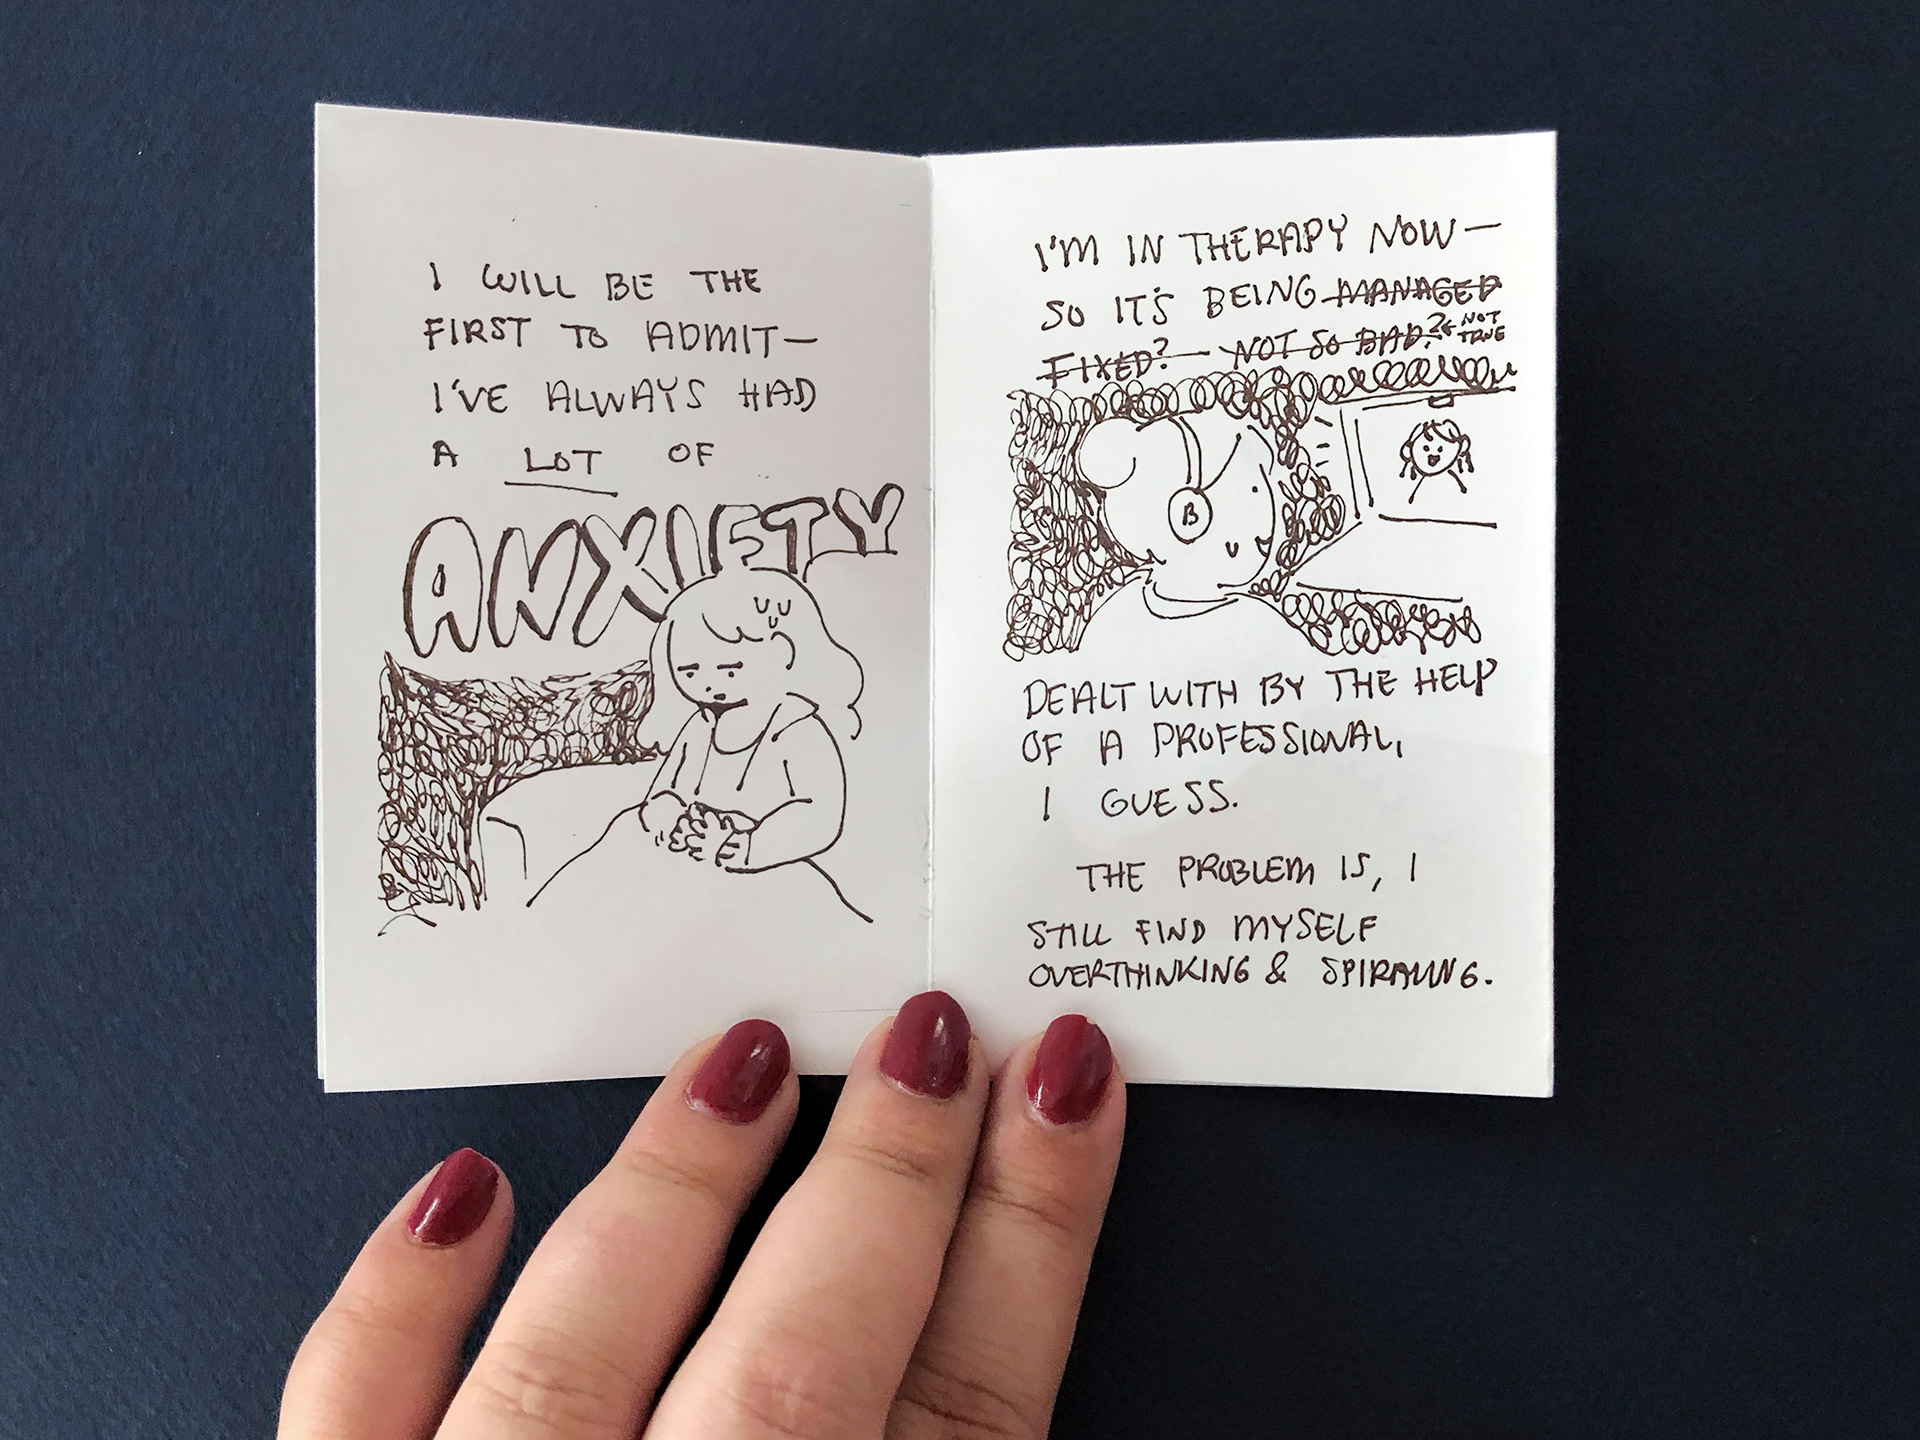 I WILL BE THE
FIRST TO ADMIT—
I'VE ALWAYS HAD
A LOT OF
ANXIETY
I'M IN THERAPY NOW—
SO IT'S BEING MANAGED
FIXED? — NOT SO BAD? ← NOT
TRUE
B
DEALT WITH BY THE HELP
OF A PROFESSIONAL,
I GUESS.
THE PROBLEM IS, I
STILL FIND MYSELF
OVERTHINKING & SPIRALING.